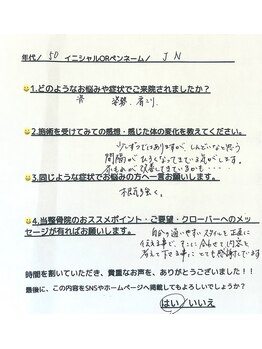 年代/ 50 イニシャルORペンネーム/ J N
1.どのようなお悩みや症状でご来院されましたか?
姿勢、肩こり、
2.施術を受けてみての感想・感じた体の変化を教えてください。
少しずつではありますが、しんどいなと思う
間隔がひろくなってきている気がします。
3.同じような症状でお悩みの方へ一言お願いします。
根気強く。
4.当整骨院のおススメポイント・ご要望・クローバーへのメッ
セージが有ればお願いします。
自分の通いやすいスタイルを正直に
伝える事で、そこに合わせて内容を
考えて下さる事にとても感謝しています
時間を割いていただき、貴重なお声を、ありがとうございました!!
最後に、この内容をSNSやホームページへ掲載してもよろしいでしょうか?
はい/いいえ